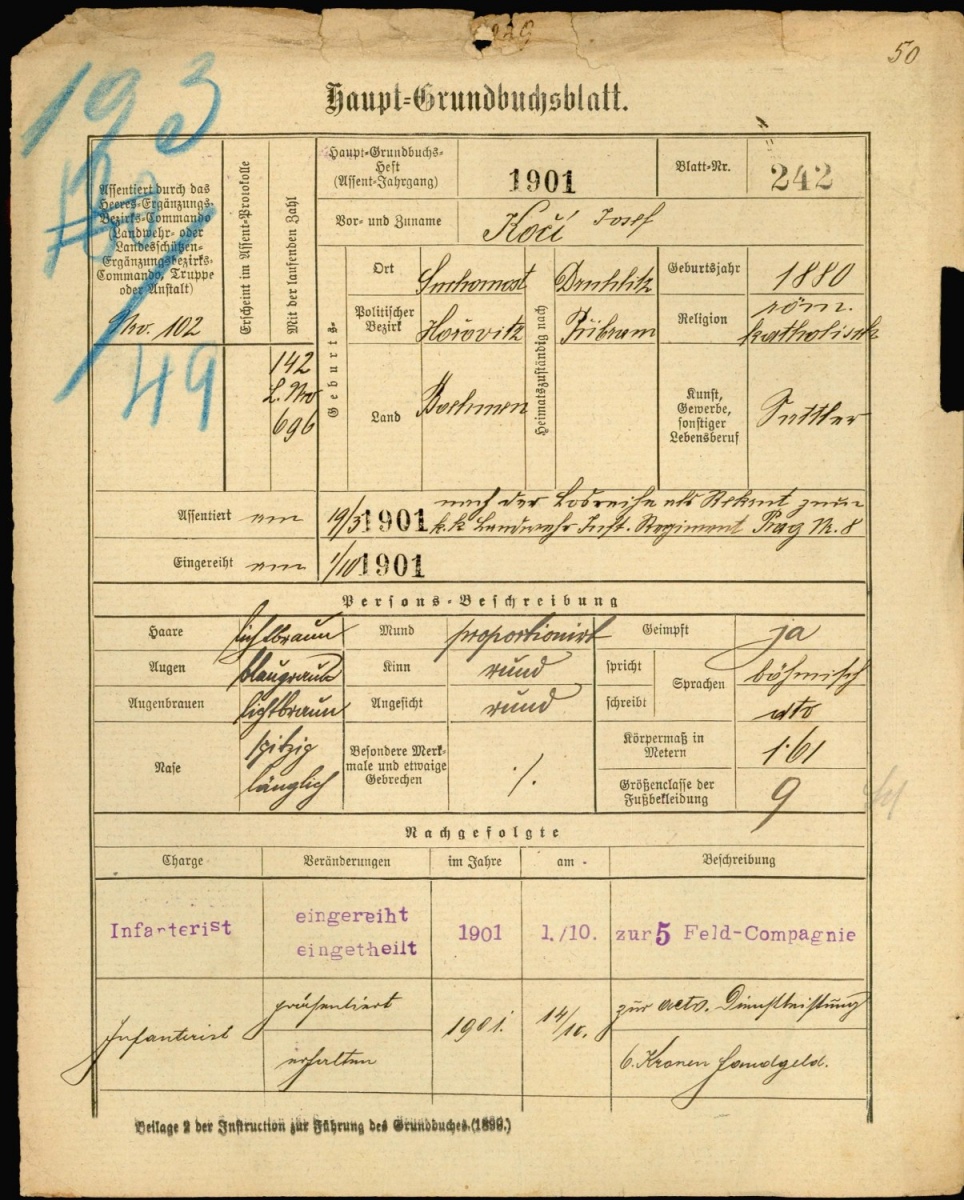 229
50
193
49
Haupt-Grundbuchsblatt.
Assentiert durch das
Heeres-Ergänzungs-
Bezirks-Commando
(Landwehr- oder
Landesschützen-
Ergänzungsbezirks-
Commando, Truppe
oder Anstalt)
Nro. 102
Erscheint im Assent-Protokolle
Mit der laufenden Zahl
142
L. Nro
696
Haupt-Grundbuchs-
Heft
(Assent-Jahrgang)
1901
Blatt-Nr.
242
Vor- und Zuname
Kočí Josef
Geburts-
Ort
Suchomast
Politischer
Bezirk
Hořovitz
Land
Boehmen
Heimatszuständig nach
Druhlitz
Přibram
Geburtsjahr
1880
Religion
röm.
katholisch
Kunst,
Gewerbe,
sonstiger
Lebensberuf
Sattler
Assentiert am
19/3 1901
nach der Losreihe als Rekrut zum
k.k. Landwehr Inft. Regiment Prag Nr. 8
Eingereiht am
1/10 1901
Persons-Beschreibung
Haare
lichtbraun
Mund
proportionirt
Geimpft
ja
Augen
blaugrau
Kinn
rund
spricht
Sprachen
böhmisch
Augenbrauen
lichtbraun
Angesicht
rund
schreibt
dto
Nase
spitzig
länglich
Besondere Merk-
male und etwaige
Gebrechen
./.
Körpermaß in
Metern
1·61
Größenclasse der
Fußbekleidung
9
Nachgefolgte
Charge
Veränderungen
im Jahre
am
Beschreibung
Infanterist
eingereiht
eingetheilt
1901
1./10.
zur 5 Feld-Compagnie
Infanterist
präsentiert
erhalten
1901.
14/10.
zur actv. Dienstleistung
6. Kronen Handgeld.
Beilage 2 der Instruction zur Führung des Grundbuches.(1899.)